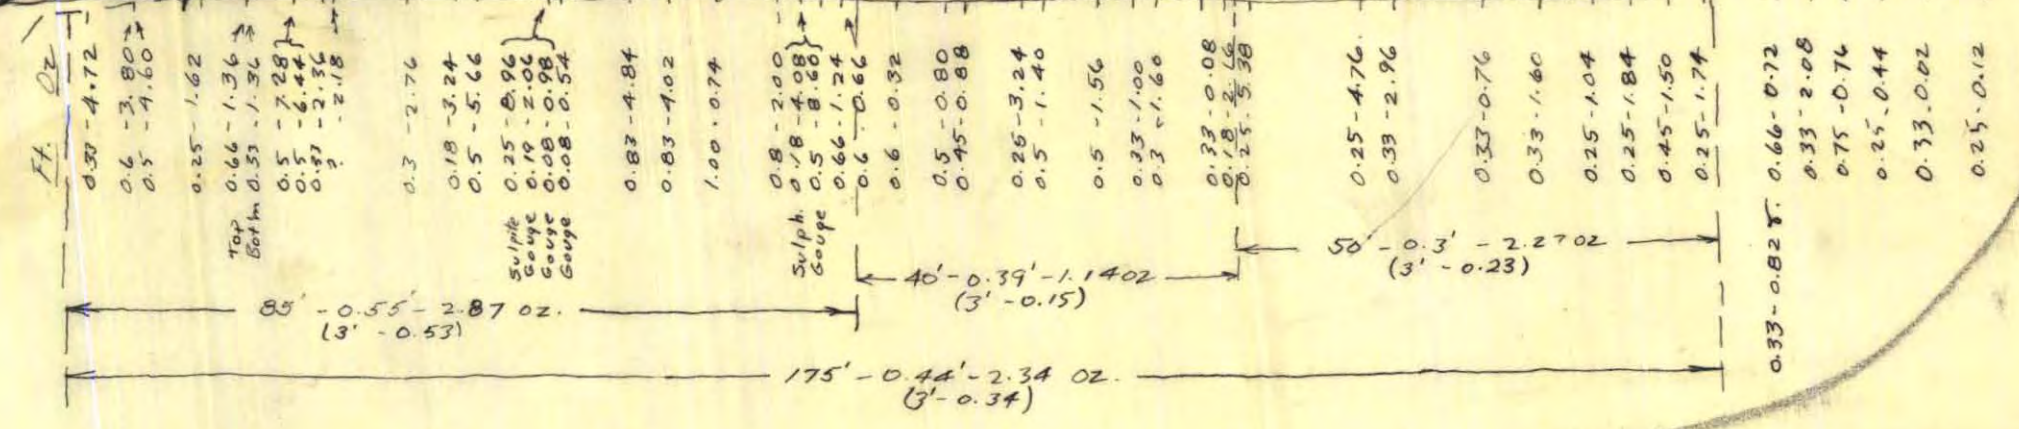 Ft. Oz
0.33 - 4.72
0.6 - 3.80
0.5 - 4.60
0.25 - 1.62
Top 0.66 - 1.36
Botm 0.33 - 1.36
0.5 - 7.28
0.5 - 6.44
0.33 - 2.36
? - 2.18
0.3 - 2.76
0.18 - 3.24
0.5 - 5.66
Sulpite 0.25 - 8.96
Gouge 0.19 - 2.06
Gouge 0.08 - 0.98
Gouge 0.08 - 0.54
0.83 - 4.84
0.83 - 4.02
1.00 - 0.74
0.8 - 2.00
Sulph. 0.18 - 4.08
Gouge 0.5 - 8.60
0.66 - 1.24
0.6 - 0.66
0.6 - 0.32
0.5 - 0.80
0.45 - 0.88
0.25 - 3.24
0.5 - 1.40
0.5 - 1.56
0.33 - 1.00
0.3 - 1.60
0.33 - 0.08
0.18 - 2.66
0.25 - 5.38
0.25 - 4.76
0.33 - 2.96
0.33 - 0.76
0.33 - 1.60
0.25 - 1.04
0.25 - 1.84
0.45 - 1.50
0.25 - 1.74
0.33 - 0.82 T. 0.66 - 0.72
0.33 - 2.08
0.75 - 0.76
0.25 - 0.44
0.33 - 0.02
0.25 - 0.12
50' - 0.3' - 2.27 oz
(3' - 0.23)
40' - 0.39' - 1.14 oz
(3' - 0.15)
85' - 0.55' - 2.87 oz.
(3' - 0.53)
175' - 0.44' - 2.34 oz.
(3' - 0.34)